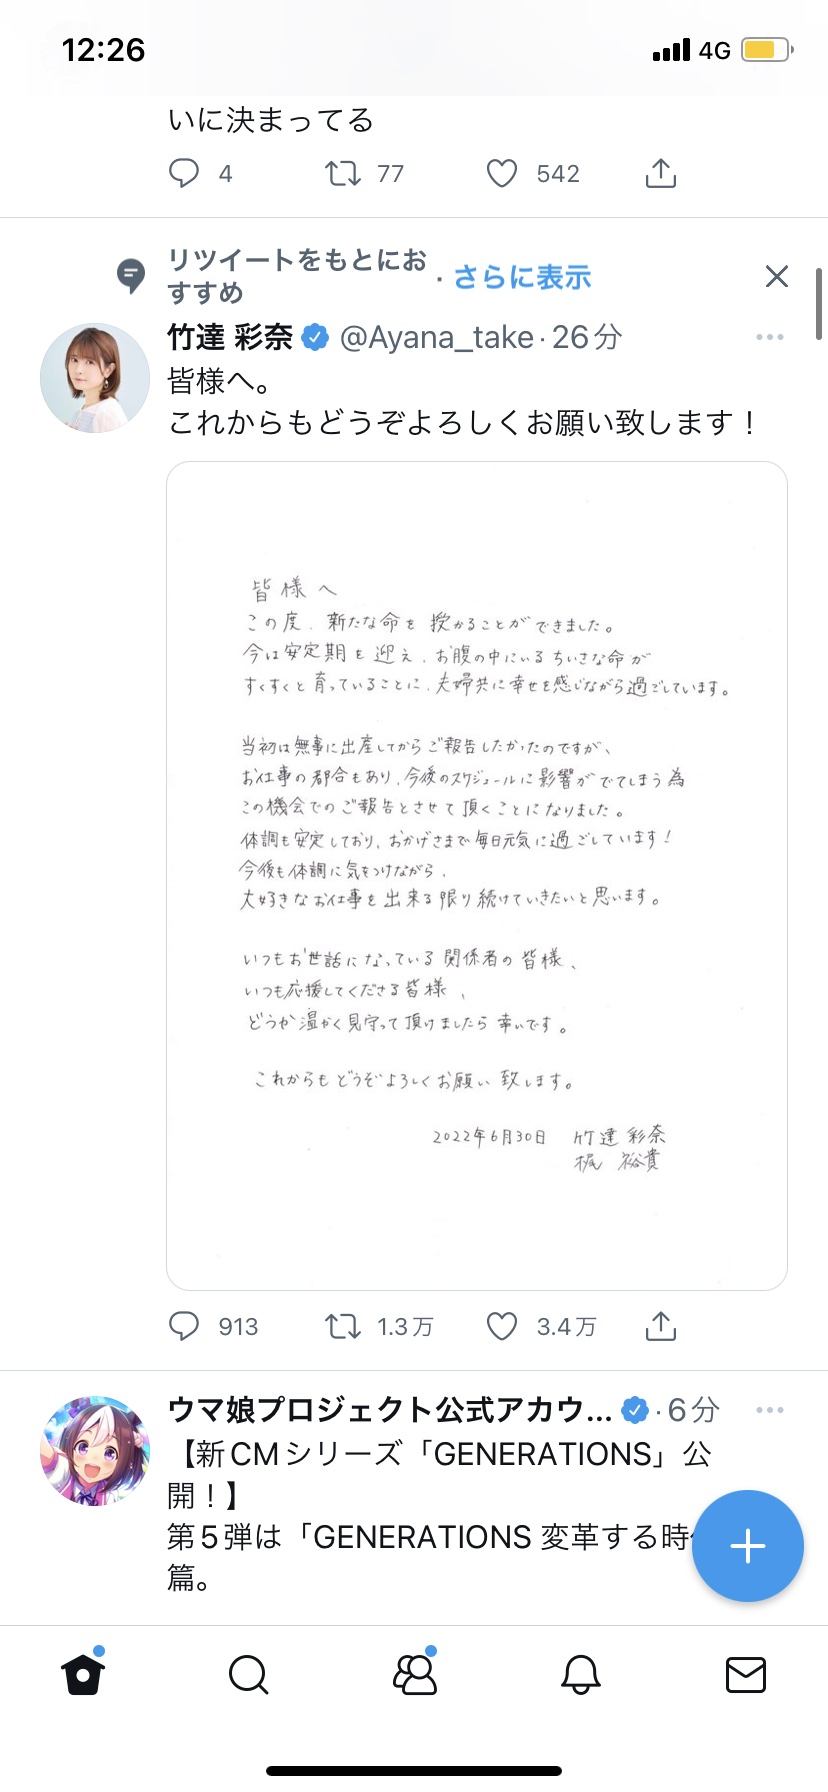 12:26
4G
いに決まってる
4 77 542
リツイートをもとにお
すすめ · さらに表示
竹達 彩奈 @Ayana_take · 26分
皆様へ。
これからもどうぞよろしくお願い致します！
皆様へ
この度、新たな命を授かることができました。
今は安定期を迎え、お腹の中にいるちいさな命が
すくすくと育っていることに、夫婦共に幸せを感じながら過ごしています。
当初は無事に出産してからご報告したかったのですが、
お仕事の都合もあり、今後のスケジュールに影響がでてしまう為
この機会でのご報告とさせて頂くことになりました。
体調も安定しており、おかげさまで毎日元気に過ごしています！
今後も体調に気をつけながら、
大好きなお仕事を出来る限り続けていきたいと思います。
いつもお世話になっている関係者の皆様、
いつも応援してくださる皆様、
どうか温かく見守って頂けましたら幸いです。
これからもどうぞよろしくお願い致します。
2022年6月30日 竹達 彩奈
梶 裕貴
913 1.3万 3.4万
ウマ娘プロジェクト公式アカウ... · 6分
【新CMシリーズ「GENERATIONS」公
開！】
第5弾は「GENERATIONS 変革する時
篇。